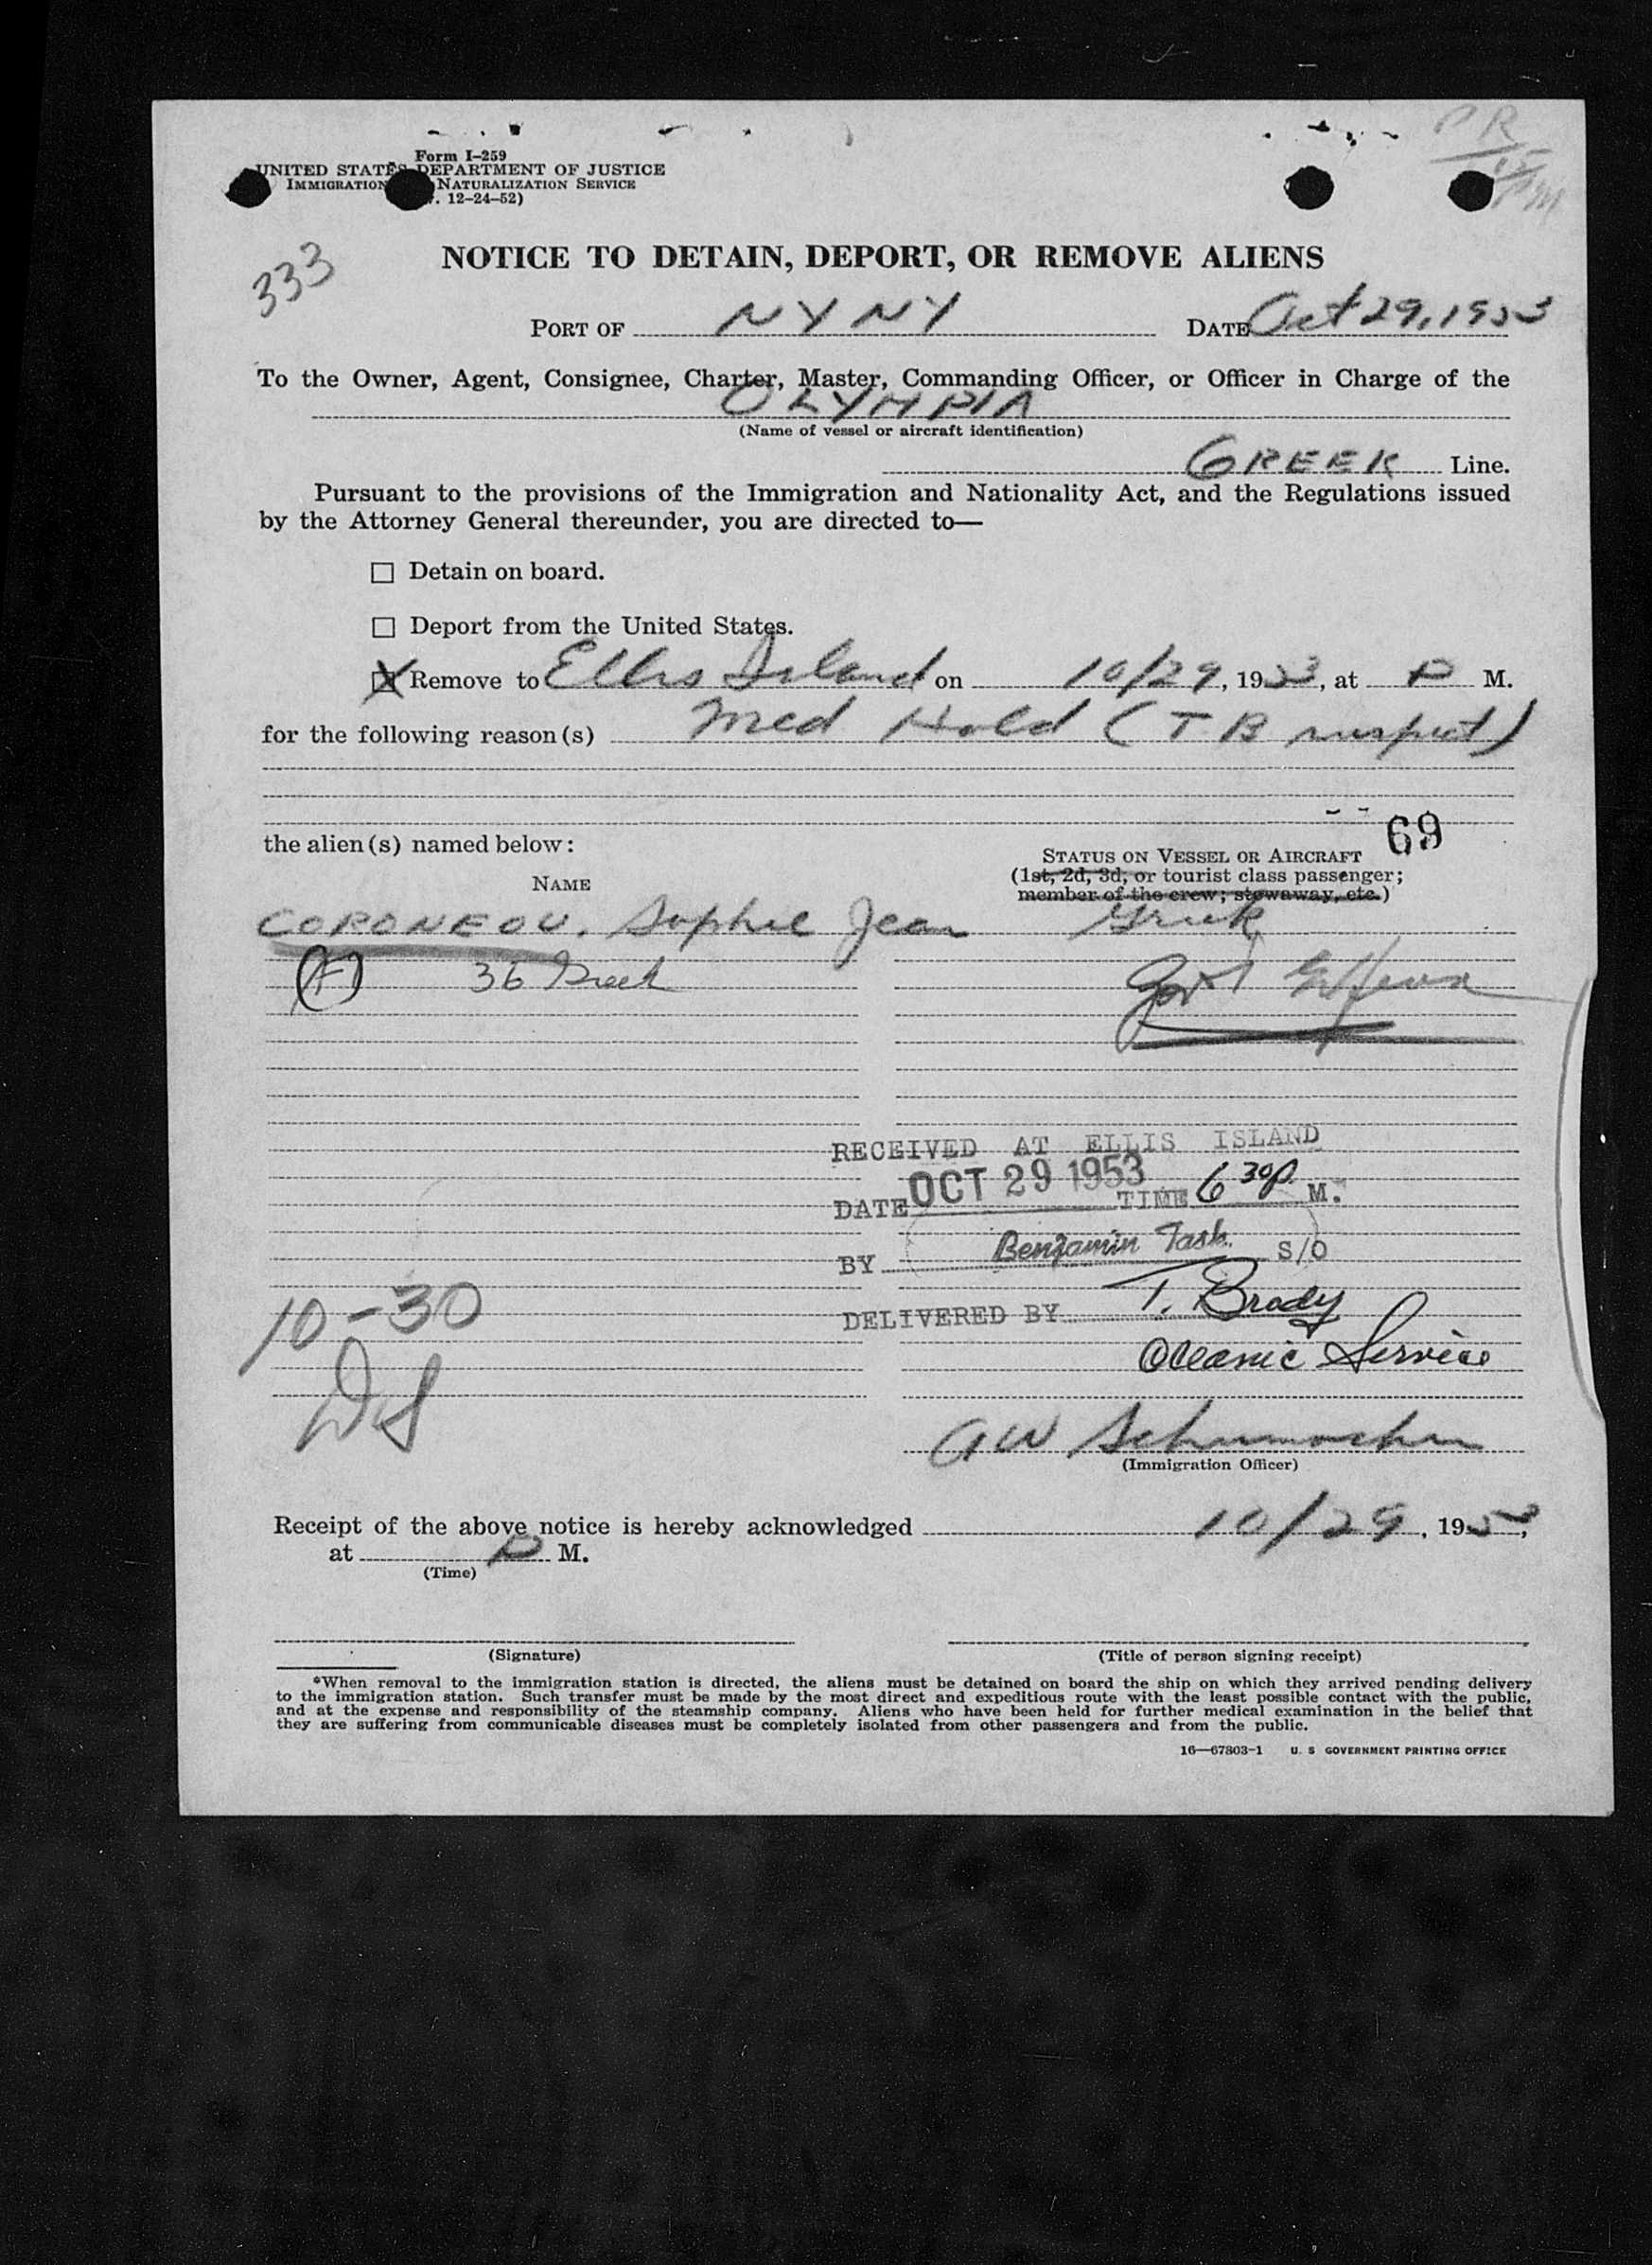 Form I-259
UNITED STATES DEPARTMENT OF JUSTICE
IMMIGRATION NATURALIZATION SERVICE
. 12-24-52)
PR
333
NOTICE TO DETAIN, DEPORT, OR REMOVE ALIENS
PORT OF NY NY DATE Oct 29, 1953
To the Owner, Agent, Consignee, Charter, Master, Commanding Officer, or Officer in Charge of the
OLYMPIA
(Name of vessel or aircraft identification)
GREEK Line.
Pursuant to the provisions of the Immigration and Nationality Act, and the Regulations issued
by the Attorney General thereunder, you are directed to—
☐ Detain on board.
☐ Deport from the United States.
☒ Remove to Ellis Island on 10/29, 1953, at P M.
for the following reason(s) Med Hold (TB suspect)
69
the alien(s) named below:
STATUS ON VESSEL OR AIRCRAFT
NAME
(1st, 2d, 3d, or tourist class passenger;
member of the crew; stowaway, etc.)
CORONEOU. Sophie Jean Greek
(F) 36 Greek
RECEIVED AT ELLIS ISLAND
DATE OCT 29 1953 TIME 6 30 P. M.
BY Benjamin Tash S/O
DELIVERED BY T. Brady
Oceanic Service
10-30
DS
AW Schumacher
(Immigration Officer)
Receipt of the above notice is hereby acknowledged 10/29, 1953,
at P M.
(Time)
(Signature) (Title of person signing receipt)
*When removal to the immigration station is directed, the aliens must be detained on board the ship on which they arrived pending delivery
to the immigration station. Such transfer must be made by the most direct and expeditious route with the least possible contact with the public,
and at the expense and responsibility of the steamship company. Aliens who have been held for further medical examination in the belief that
they are suffering from communicable diseases must be completely isolated from other passengers and from the public.
16—67803-1 U. S GOVERNMENT PRINTING OFFICE